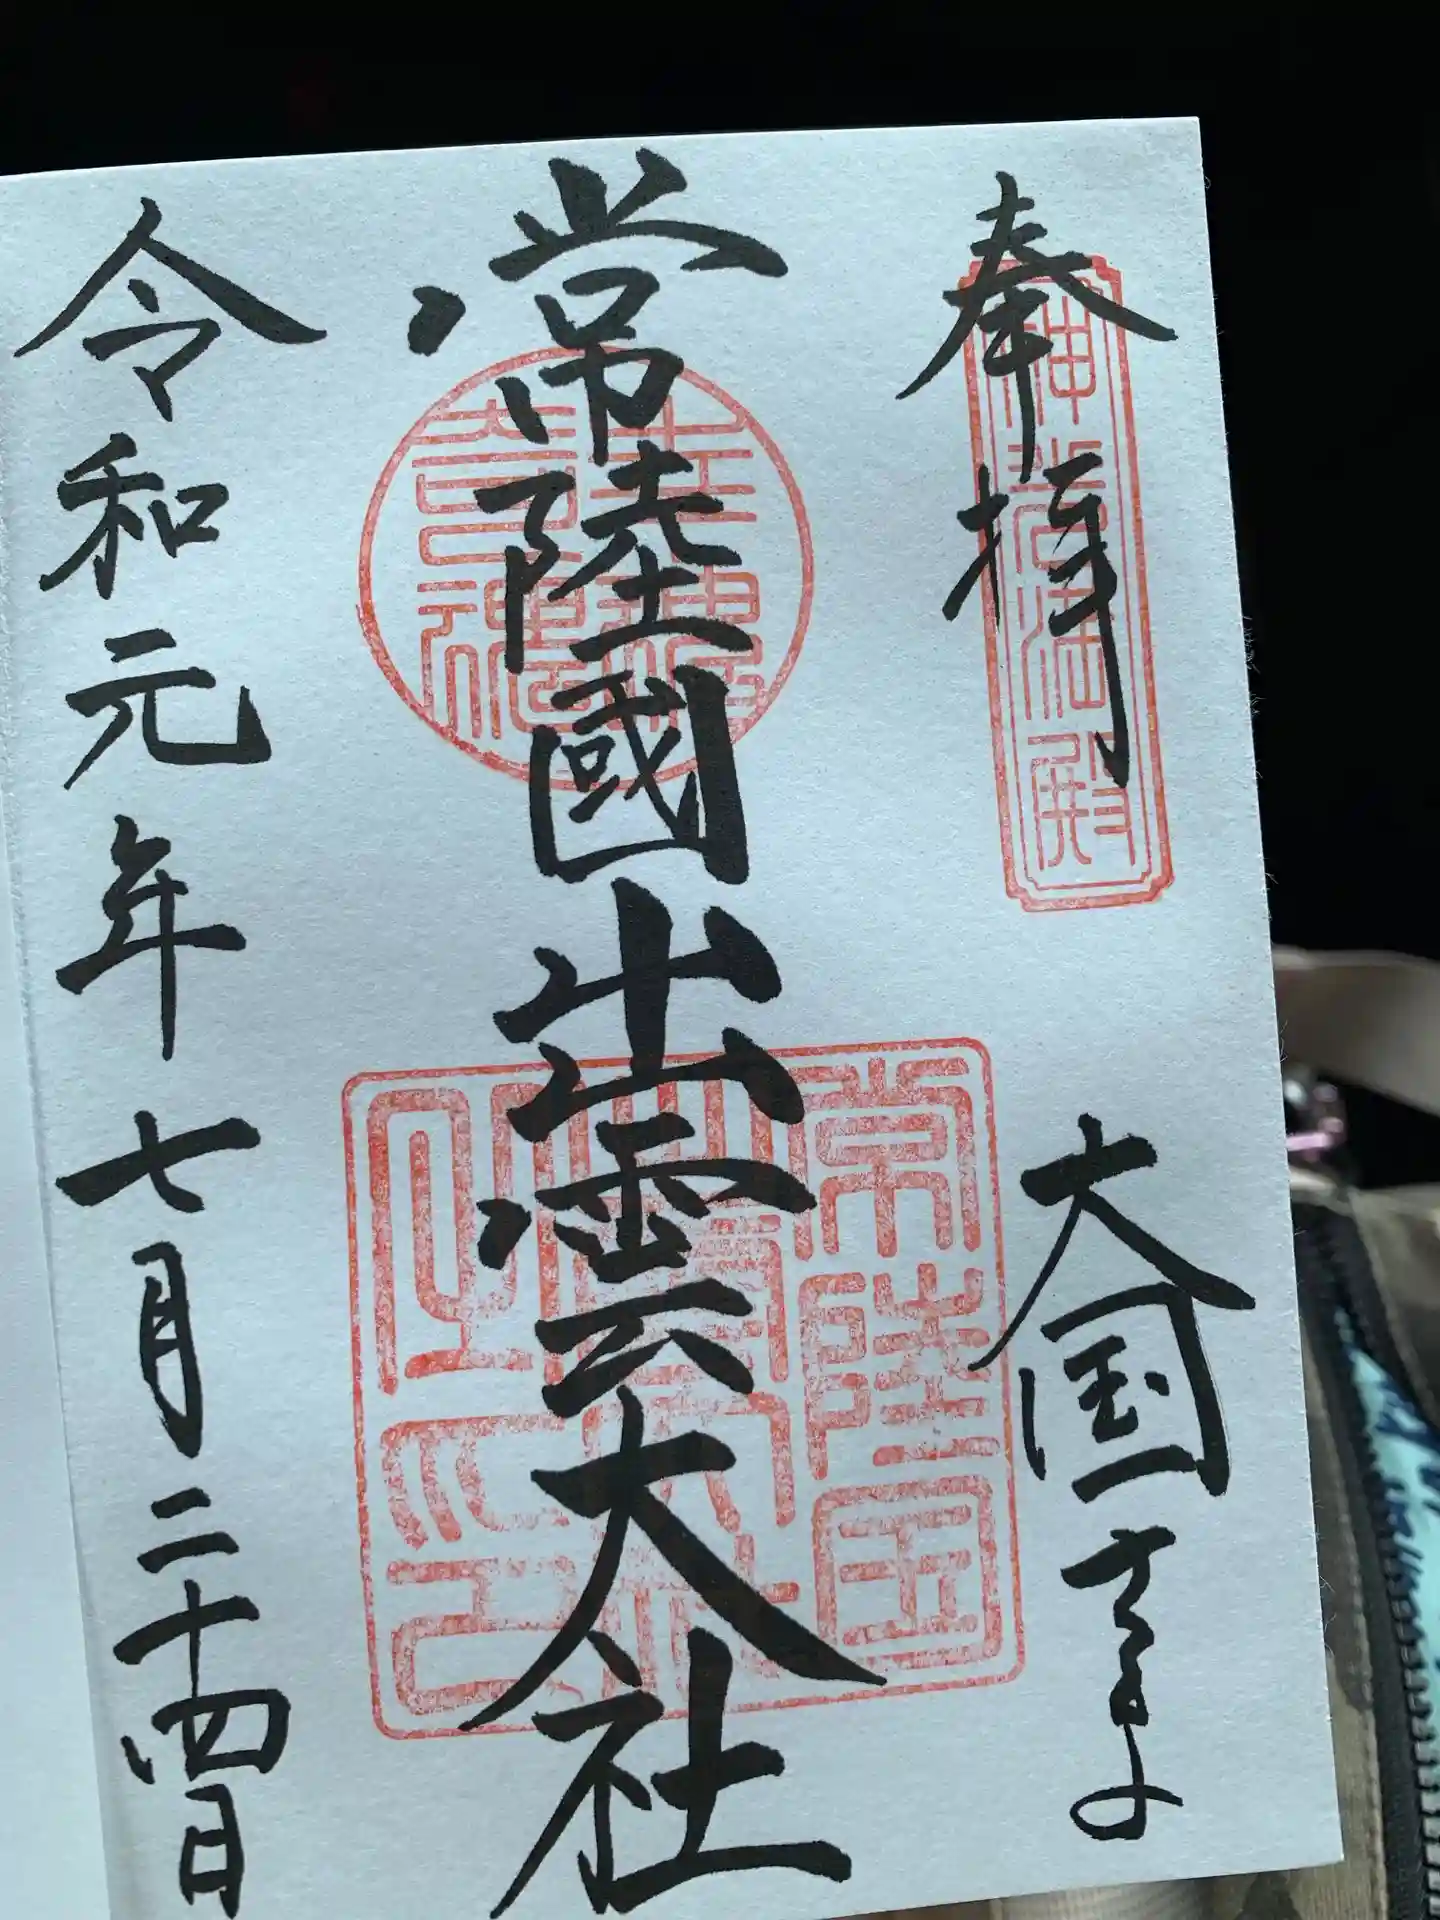 奉拝 大国さま
神光満殿
常陸國出雲大社
幸魂奇魂
常陸国
出雲大社
之印
令和元年七月二十四日